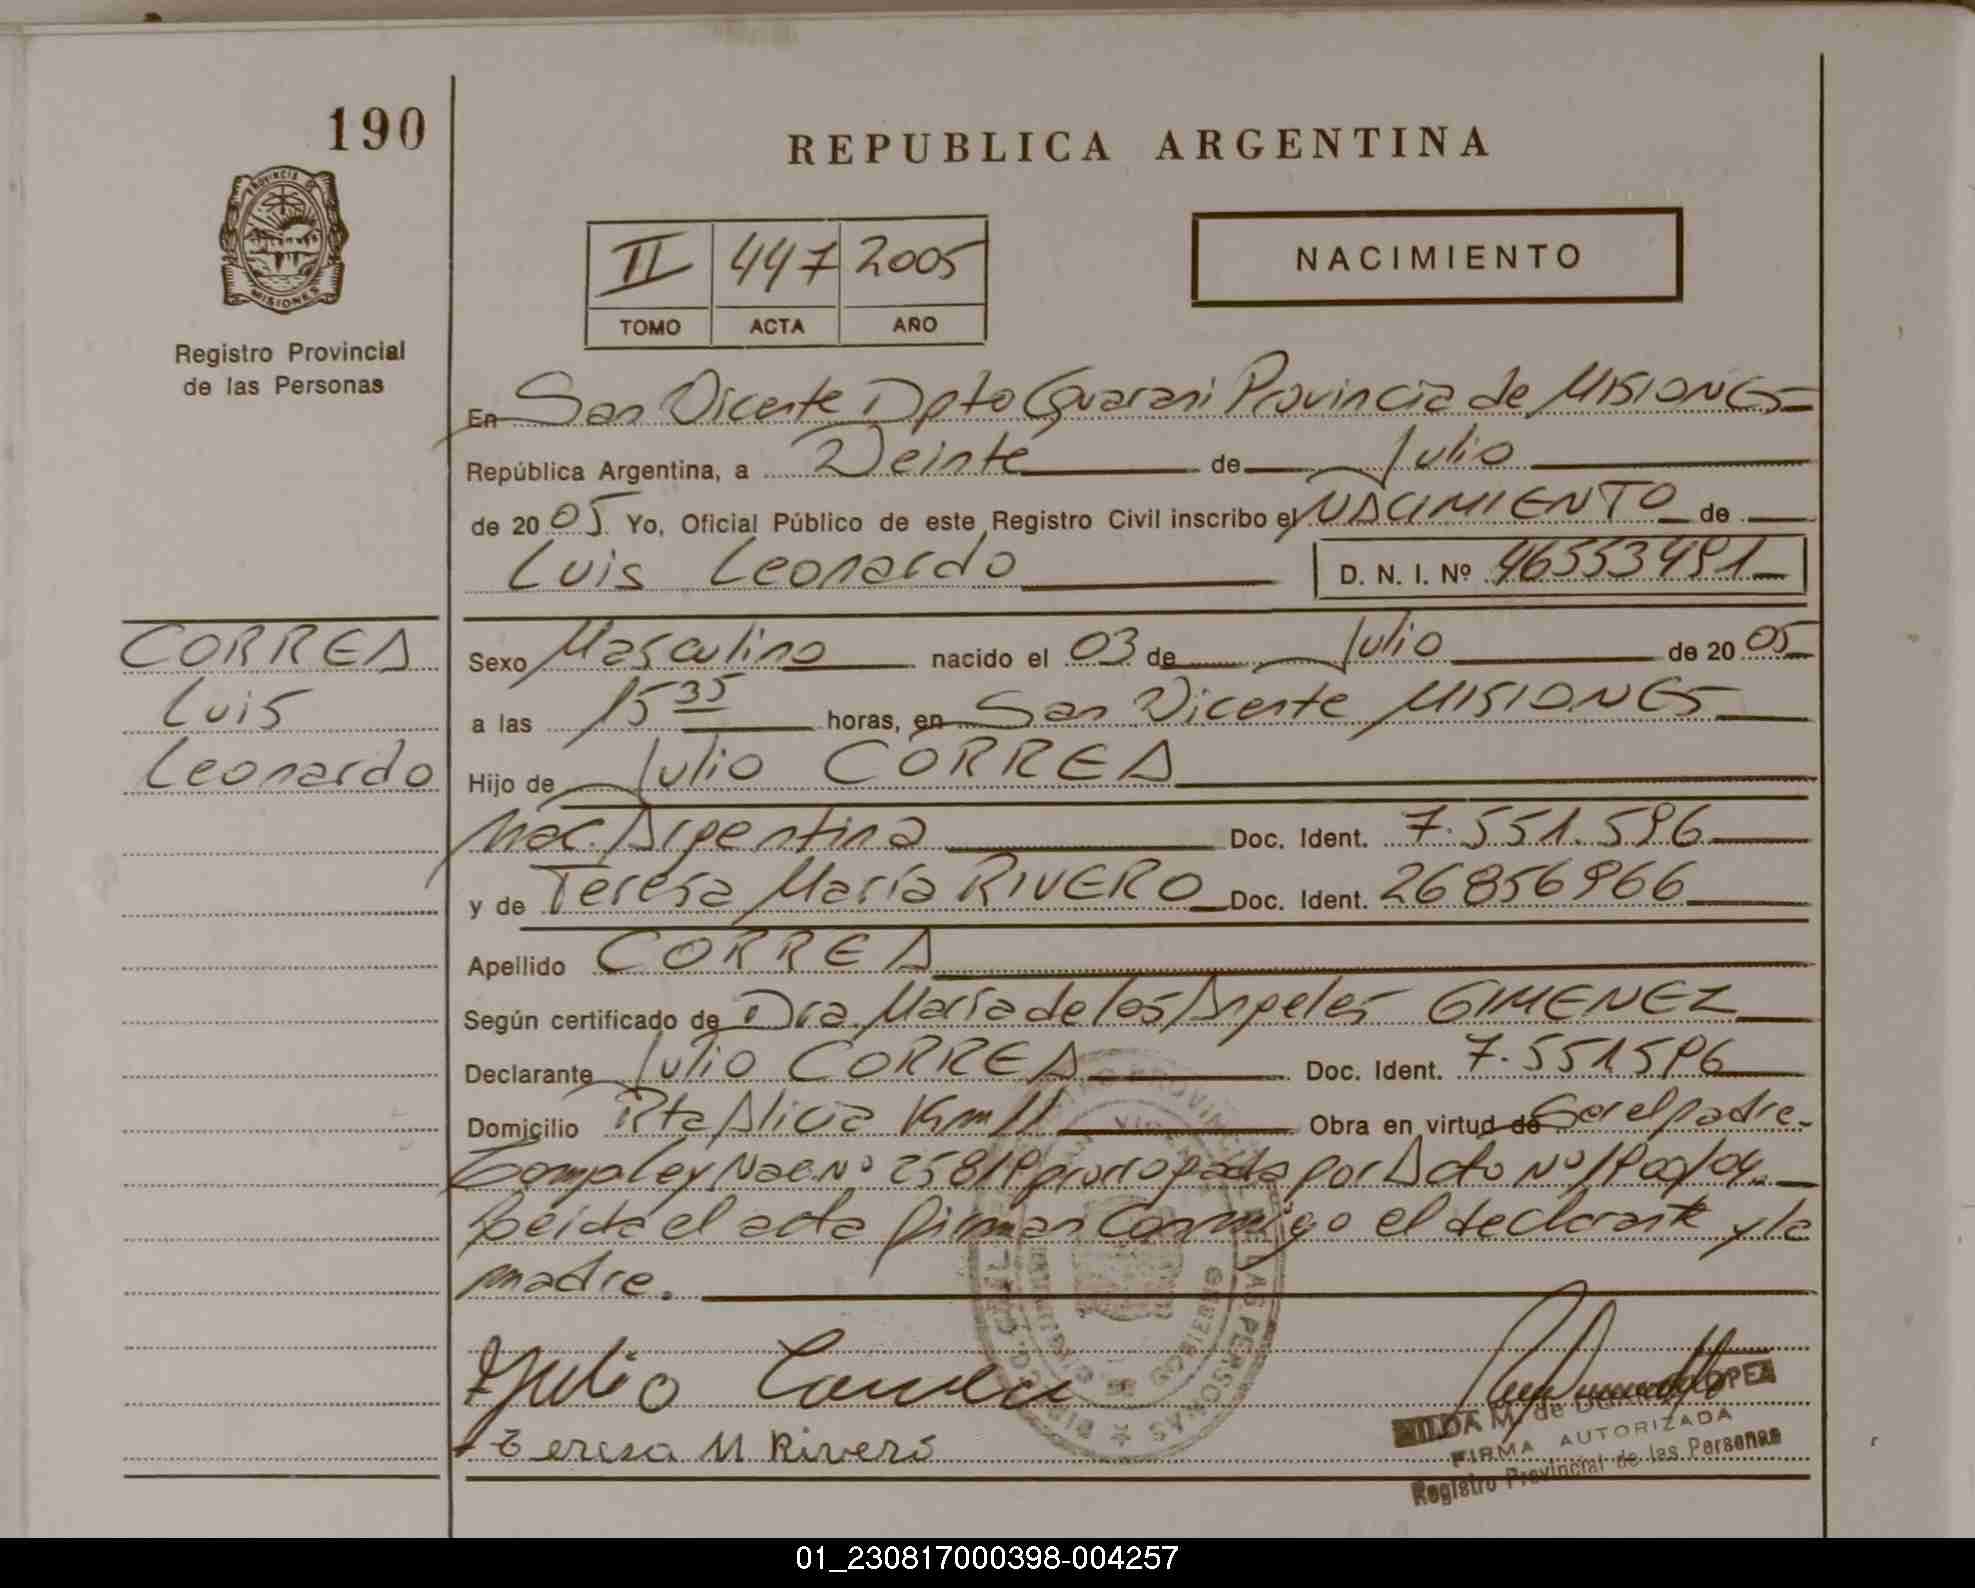 190
REPUBLICA ARGENTINA
PROVINCIA DE
MISIONES
Registro Provincial
de las Personas
II 447 2005
TOMO ACTA AÑO
NACIMIENTO
En San Vicente Dpto Guarani Provincia de MISIONES
República Argentina, a Veinte de Julio
de 2005 Yo, Oficial Público de este Registro Civil inscribo el NACIMIENTO de
Luis Leonardo D. N. I. Nº 46553491
CORREA
Luis
Leonardo
Sexo Masculino nacido el 03 de Julio de 2005
a las 15 35 horas, en San Vicente MISIONES
Hijo de Julio CORREA
Nac. Argentina Doc. Ident. 7.551.596
y de Teresa María RIVERO Doc. Ident. 26856966
Apellido CORREA
Según certificado de Dra. María de los Angeles GIMENEZ
Declarante Julio CORREA Doc. Ident. 7.551596
Domicilio Pta Alicia Km 11 Obra en virtud de Ser el padre.
Ley Nac. Nº 25819 prorrogada por Dcto Nº 1900/04.
Leida el acta firman Conmigo el declarante y la
madre.
Julio Correa
Teresa M Rivero
HILDA M. de LOPEZ
FIRMA AUTORIZADA
Registro Provincial de las Personas
01_230817000398-004257